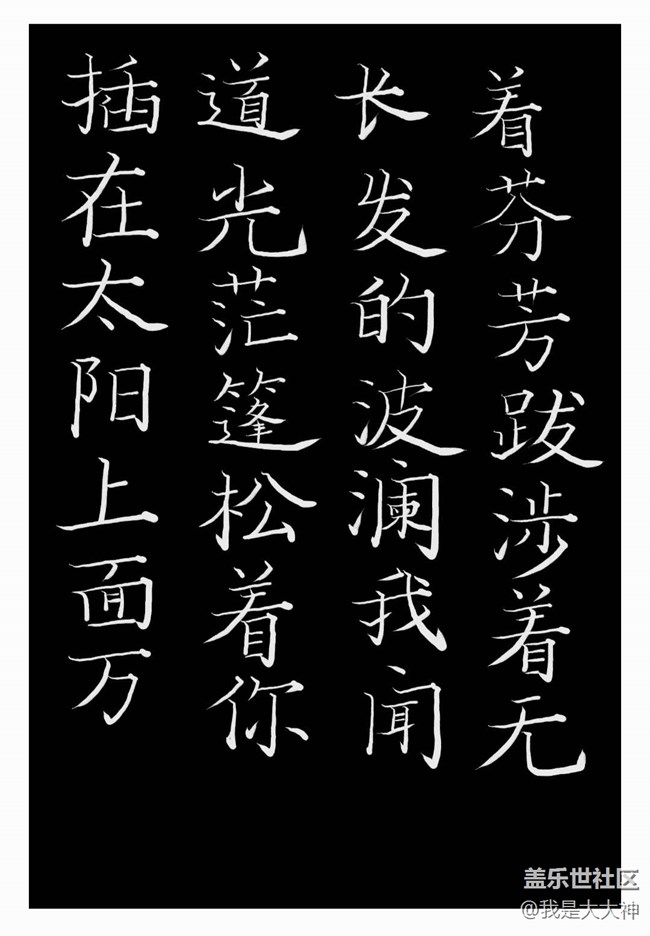 插在太阳上面万
道光茫篷松着你
长发的波澜我闻
着芬芳跋涉着无
盖乐世社区
@我是大大神